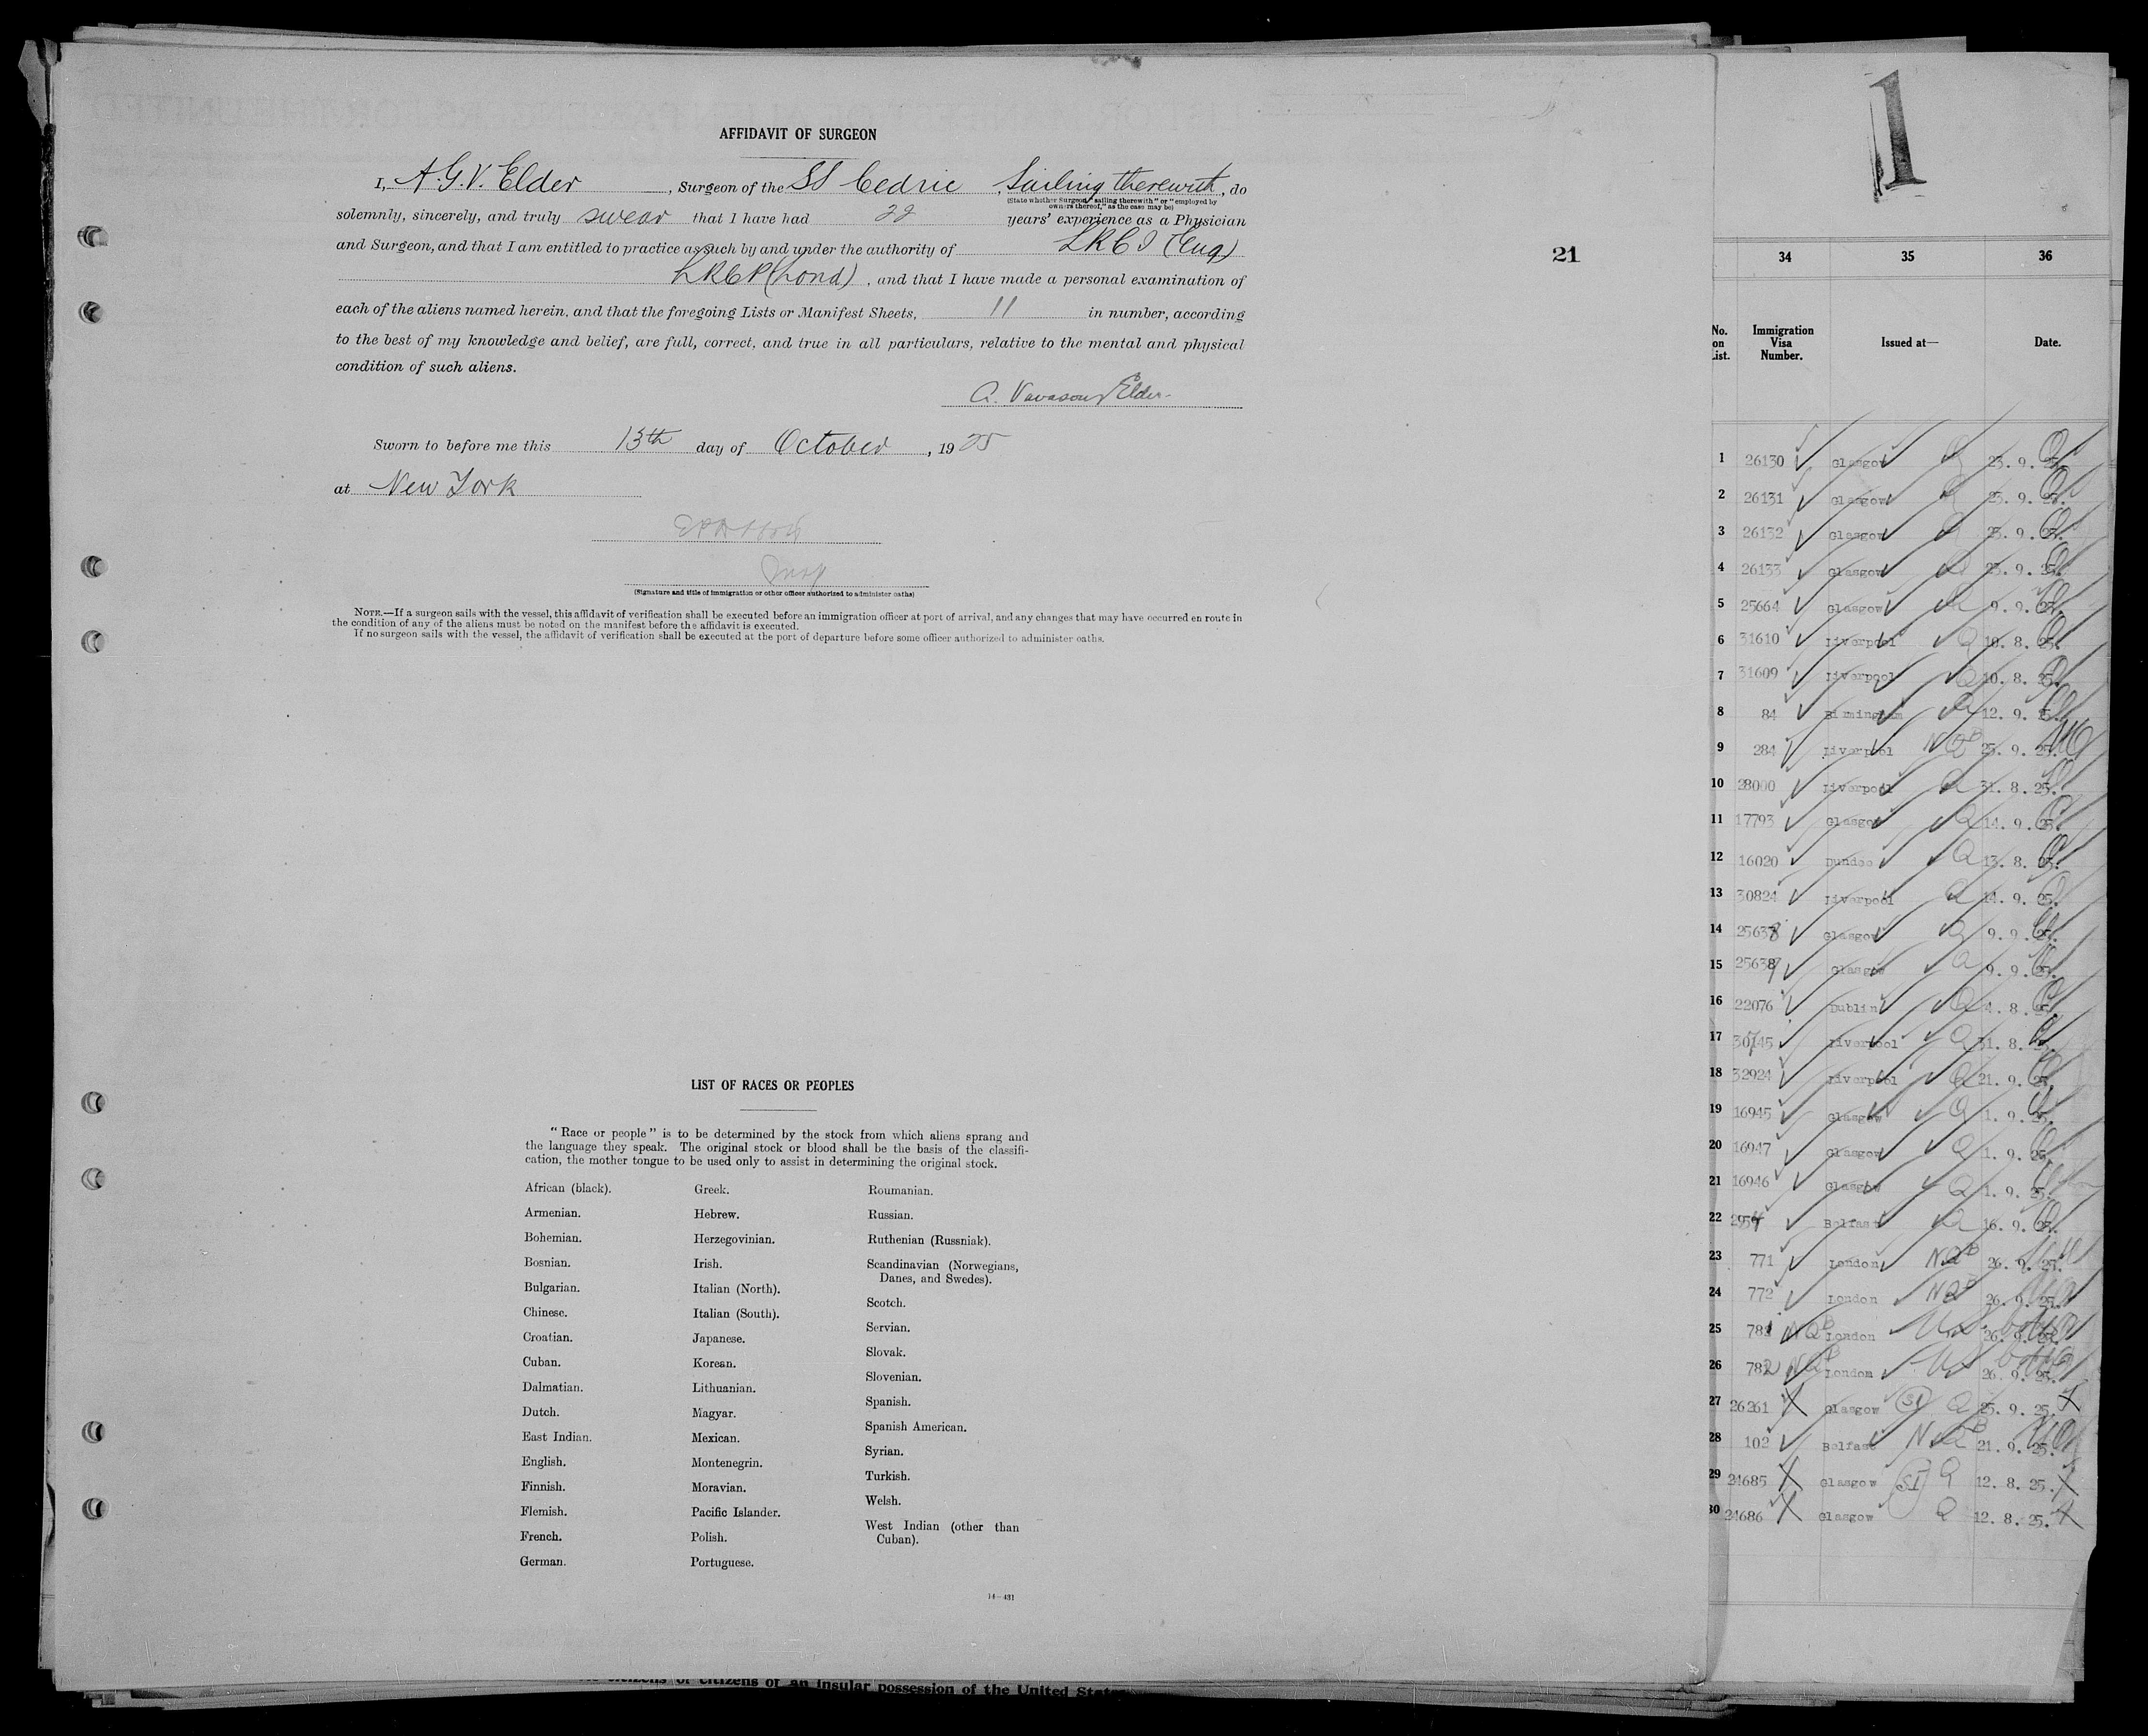 AFFIDAVIT OF SURGEON
I, A.G.V. Elder, Surgeon of the SS Cedric, Sailing therewith, do
(State whether Surgeon "sailing therewith" or "employed by
owners thereof," as the case may be)
solemnly, sincerely, and truly swear that I have had 22 years' experience as a Physician
and Surgeon, and that I am entitled to practice as such by and under the authority of (Eng)
(Lond), and that I have made a personal examination of
each of the aliens named herein, and that the foregoing Lists or Manifest Sheets, 11 in number, according
to the best of my knowledge and belief, are full, correct, and true in all particulars, relative to the mental and physical
condition of such aliens.
A. Vavasour Elder
Sworn to before me this 13th day of October, 1925
at New York
(Signature and title of immigration or other officer authorized to administer oaths)
NOTE.—If a surgeon sails with the vessel, this affidavit of verification shall be executed before an immigration officer at port of arrival, and any changes that may have occurred en route in
the condition of any of the aliens must be noted on the manifest before the affidavit is executed.
If no surgeon sails with the vessel, the affidavit of verification shall be executed at the port of departure before some officer authorized to administer oaths.
21
LIST OF RACES OR PEOPLES
"Race or people" is to be determined by the stock from which aliens sprang and
the language they speak. The original stock or blood shall be the basis of the classifi-
cation, the mother tongue to be used only to assist in determining the original stock.
African (black).
Armenian.
Bohemian.
Bosnian.
Bulgarian.
Chinese.
Croatian.
Cuban.
Dalmatian.
Dutch.
East Indian.
English.
Finnish.
Flemish.
French.
German.
Greek.
Hebrew.
Herzegovinian.
Irish.
Italian (North).
Italian (South).
Japanese.
Korean.
Lithuanian.
Magyar.
Mexican.
Montenegrin.
Moravian.
Pacific Islander.
Polish.
Portuguese.
Roumanian.
Russian.
Ruthenian (Russniak).
Scandinavian (Norwegians,
Danes, and Swedes).
Scotch.
Servian.
Slovak.
Slovenian.
Spanish.
Spanish American.
Syrian.
Turkish.
Welsh.
West Indian (other than
Cuban).
14—431
citizens or citizens of an insular possession of the United States
1
34 35 36
No. Immigration Issued at— Date.
on Visa
List. Number.
1 26130 Glasgow Q 23. 9. 25.
2 26131 Glasgow Q 23. 9. 25.
3 26132 Glasgow Q 23. 9. 25.
4 26133 Glasgow Q 23. 9. 25.
5 25664 Glasgow Q 9. 9. 25.
6 31610 Liverpool Q 10. 8. 25.
7 31609 Liverpool Q 10. 8. 25.
8 84 Birmingham Q 12. 9. 25.
9 284 Liverpool NQB 25. 9. 25.
10 28000 Liverpool Q 31. 8. 25.
11 17793 Glasgow Q 14. 9. 25.
12 16020 Dundee Q 13. 8. 25.
13 30824 Liverpool Q 14. 9. 25.
14 25638 Glasgow Q 9. 9. 25.
15 25637 Glasgow Q 9. 9. 25.
16 22076 Dublin Q 4. 8. 25.
17 Liverpool Q 31. 8. 25.
18 32924 Liverpool Q 21. 9. 25.
19 16945 Glasgow Q 1. 9. 25.
20 16947 Glasgow Q 1. 9. 25.
21 16946 Glasgow Q 1. 9. 25.
22 Belfast Q 16. 9. 25.
23 771 London NQB 26. 9. 25.
24 772 London NQB 26. 9. 25.
25 781 NQB London 26. 9. 25.
26 782 NQB London 26. 9. 25.
27 26261 X Glasgow SI Q 25. 9. 25. X
28 102 Belfast NQB 21. 9. 25.
29 24685 X Glasgow SI Q 12. 8. 25. X
30 24686 X Glasgow Q 12. 8. 25. X